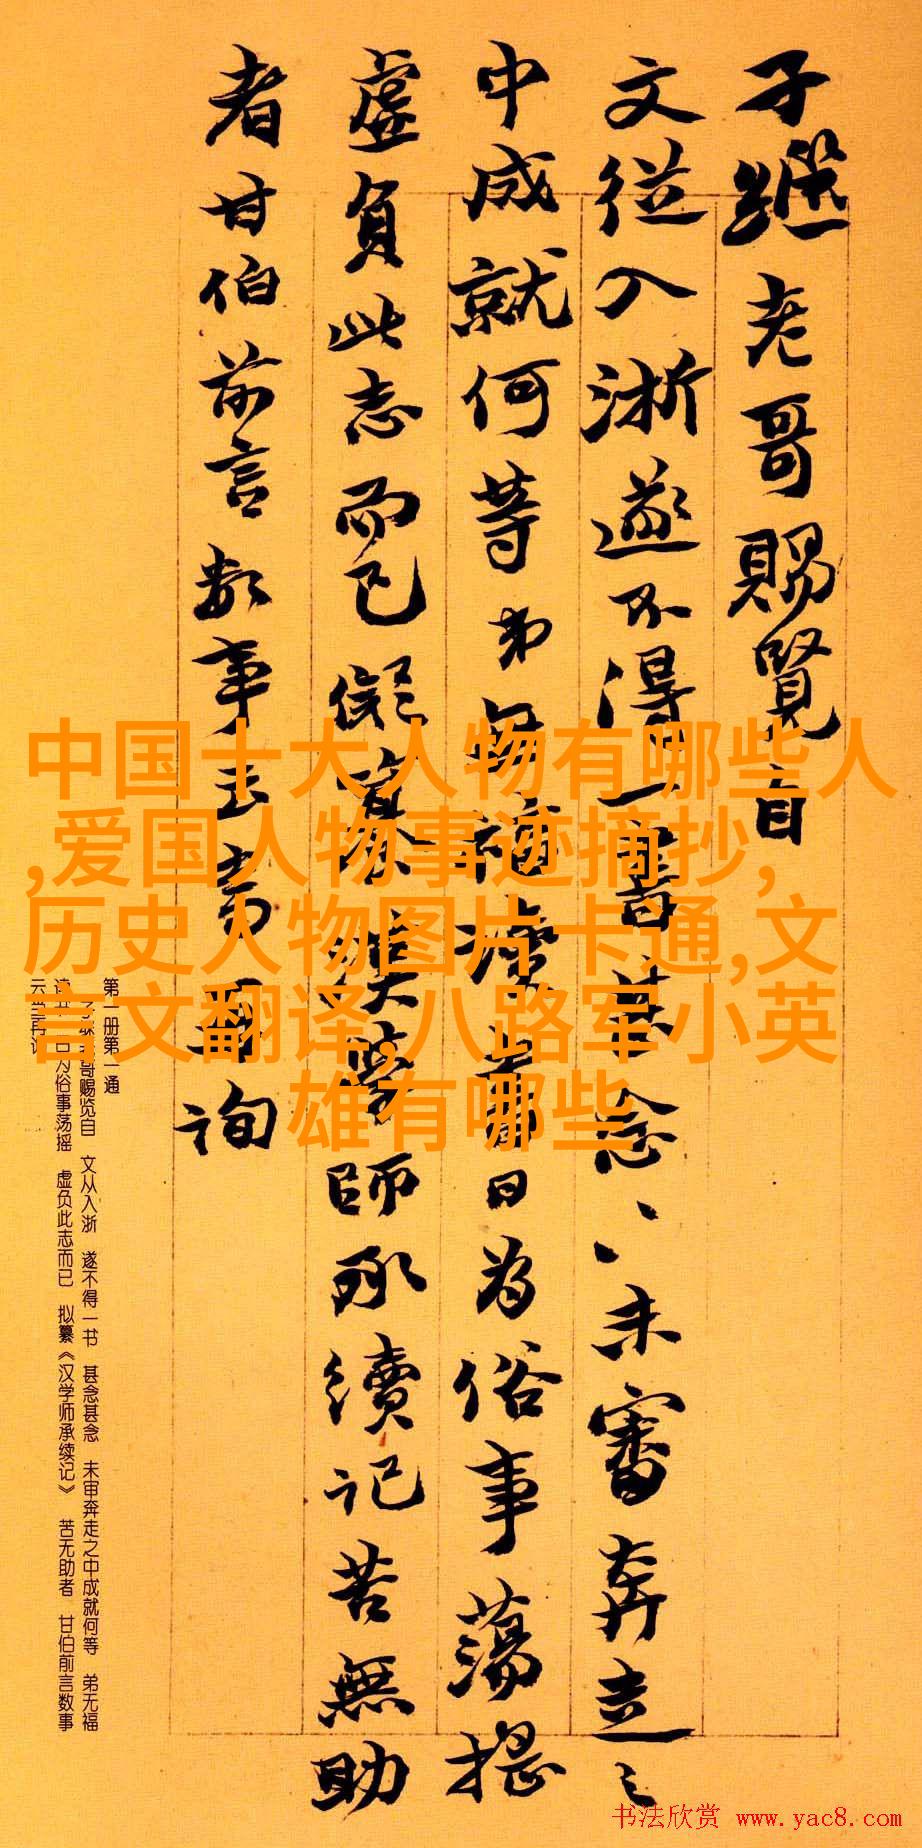 子繼老哥賜覽自
文從入浙遂不得一書甚念〻未審奔走之
中成就何等弟無福讀書日為俗事蕩搖
虛負此志而已儗纂漢學師承續記苦無助
者甘伯前言數事云當再詢
中国十大人物有哪些人
,爱国人物事迹摘抄,
历史人物图片卡通,文
言文翻译,八路军小英
雄有哪些
第一册第一通
哥赐览自 文从入浙 遂不得一书 甚念甚念 未审奔走之中成就何等 弟无福
日为俗事荡摇 虚负此志而已 拟纂《汉学师承续记》 苦无助者 甘伯前言数事
云当再询
书法欣赏 www.yac8.com